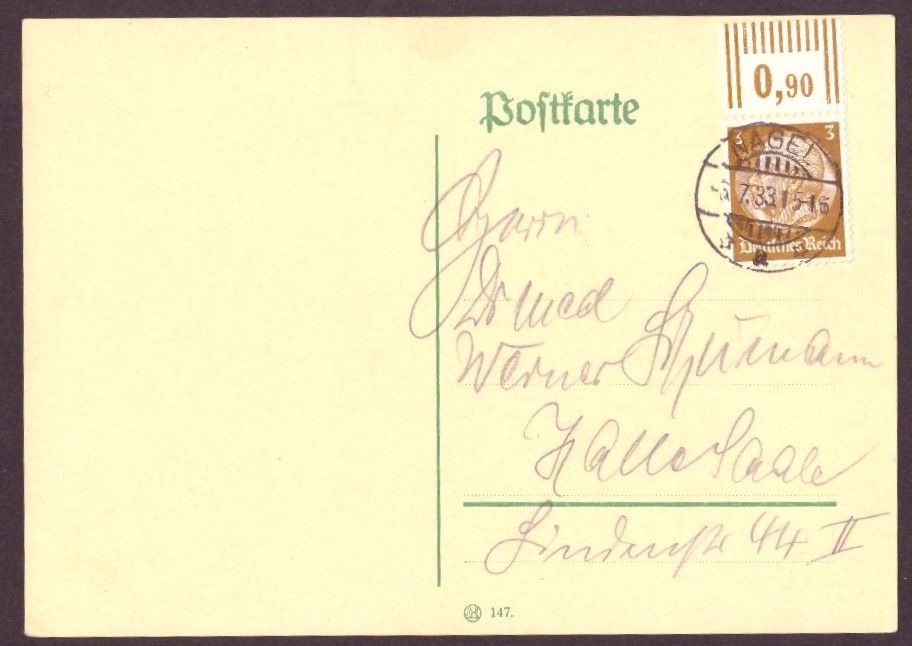 0,90
Postkarte
3 3
NAGEL
7.33.15-16
a
Deutsches Reich
Herrn
Dr med
Werner Schumann
Halle Saale
Lindenstr 44 II
147.